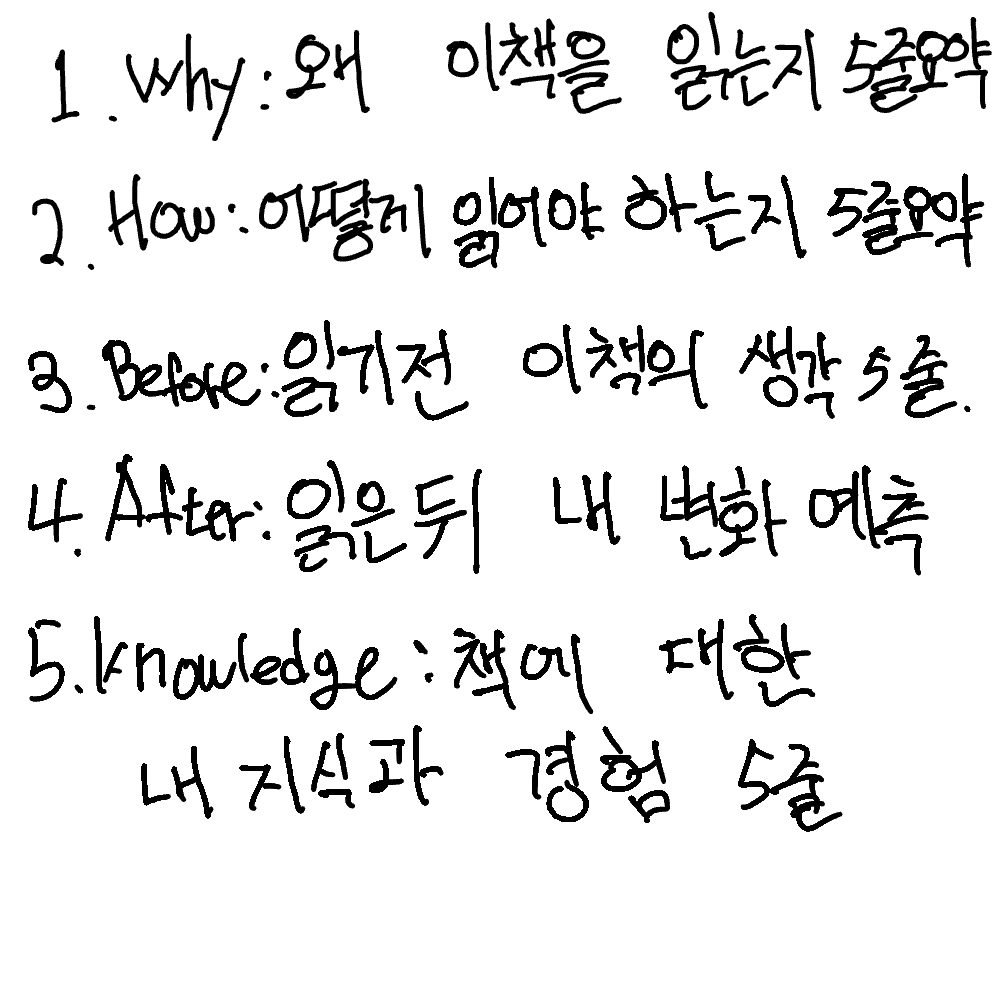 1. Why: 왜 이책을 읽는지 5줄요약
2. How: 어떻게 읽어야 하는지 5줄요약
3. Before: 읽기전 이책의 생각 5줄.
4. After: 읽은뒤 내 변화 예측
5. Knowledge: 책에 대한
내 지식과 경험 5줄